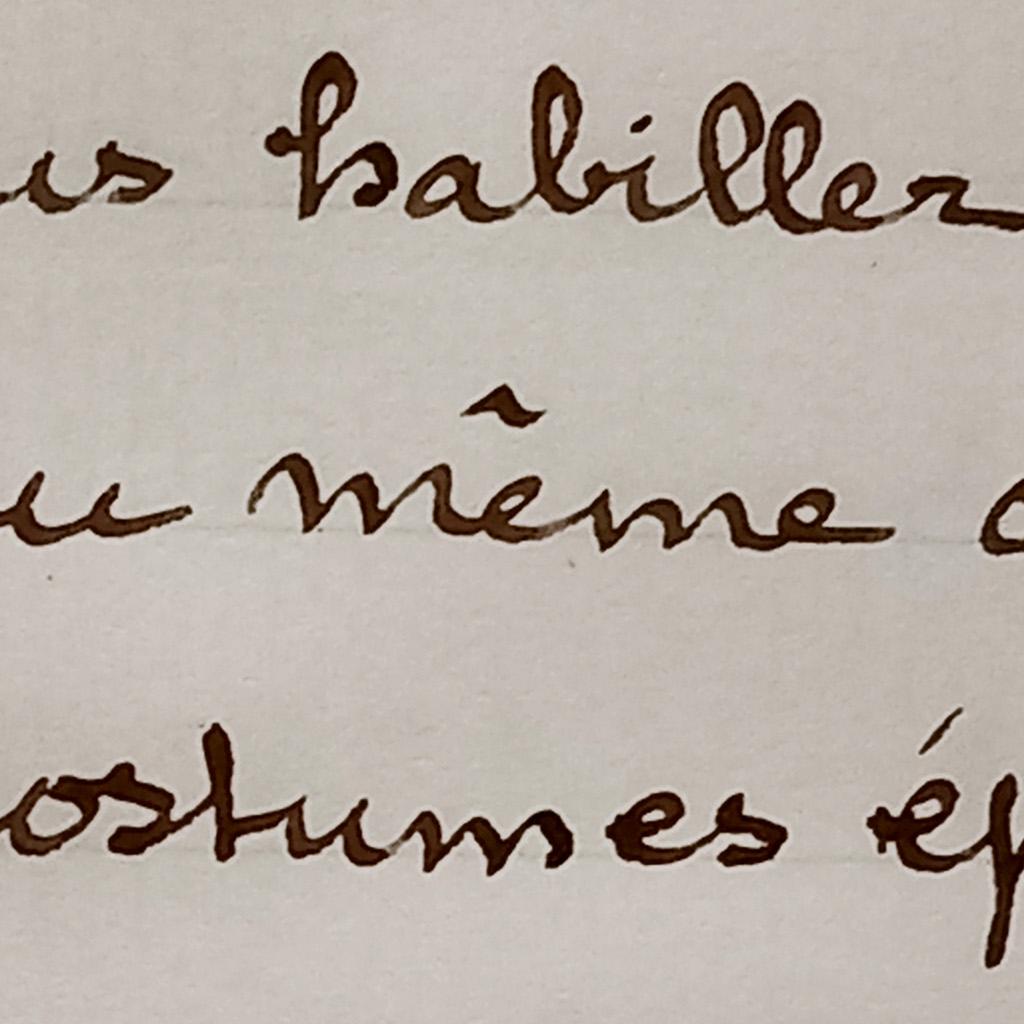 us habiller
u même
ostumes ép